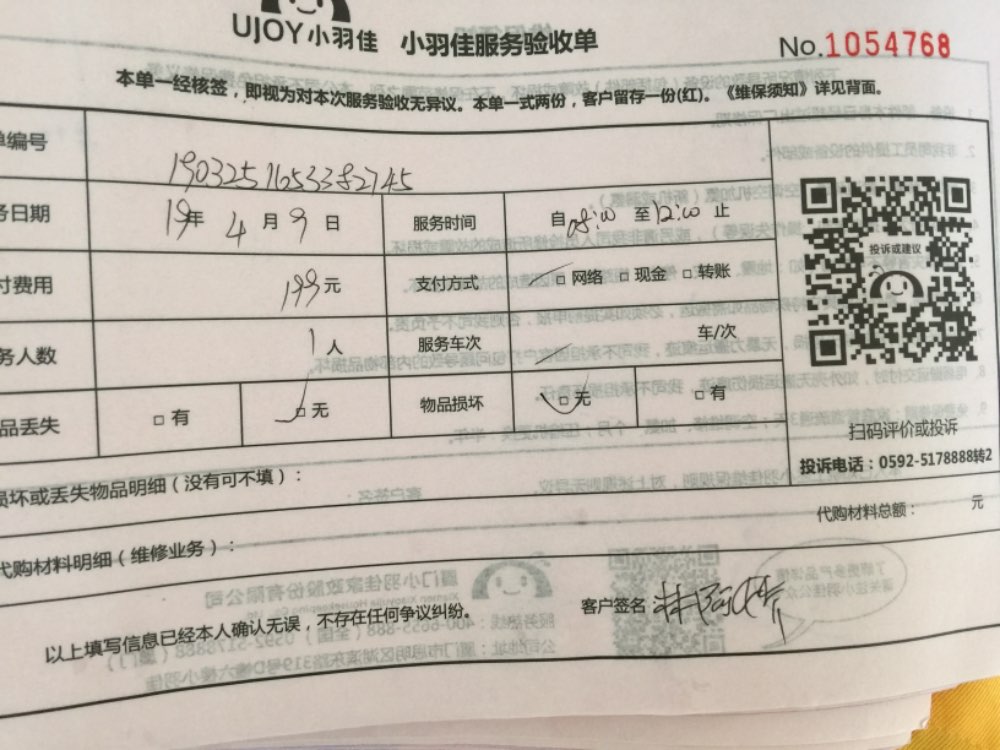 UJOY小羽佳 小羽佳服务验收单 No.1054768
本单一经核签，即视为对本次服务验收无异议。本单一式两份，客户留存一份(红)。《维保须知》详见背面。
单编号 1903251653382745
务日期 19年 4月 9日 服务时间 自08:00至12:00止
付费用 199元 支付方式 □网络 □现金 □转账
务人数 1人 服务车次 车/次
品丢失 □有 □无 物品损坏 □无 □有
投诉或建议
扫码评价或投诉
投诉电话：0592-5178888转2
损坏或丢失物品明细（没有可不填）：
代购材料总额： 元
代购材料明细（维修业务）：
以上填写信息已经本人确认无误，不存在任何争议纠纷。
客户签名：林